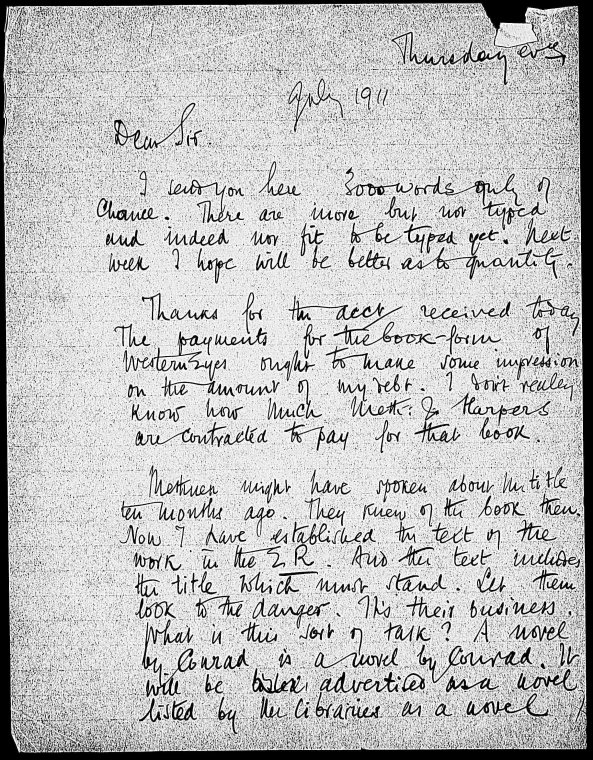 Thursday evg
July 1911
Dear Sir.
I send you here 3000 words only of
Chance. There are more but not typed
and indeed not fit to be typed yet. Next
week I hope will be better as to quantity.
Thanks for the acct received today
The payments for the book-form of
Western Eyes ought to make some impression
on the amount of my debt. I don't really
know how much Meth: & Harpers
are contracted to pay for that book.
Methuen might have spoken about the title
ten months ago. They knew of the book then.
Now I have established the text of the
work in the E R. And the text includes
the title which must stand. Let them
look to the danger. It's their business.
What is this sort of talk? A novel
by Conrad is a novel by Conrad. It
will be advertised as a novel
listed by the libraries as a novel